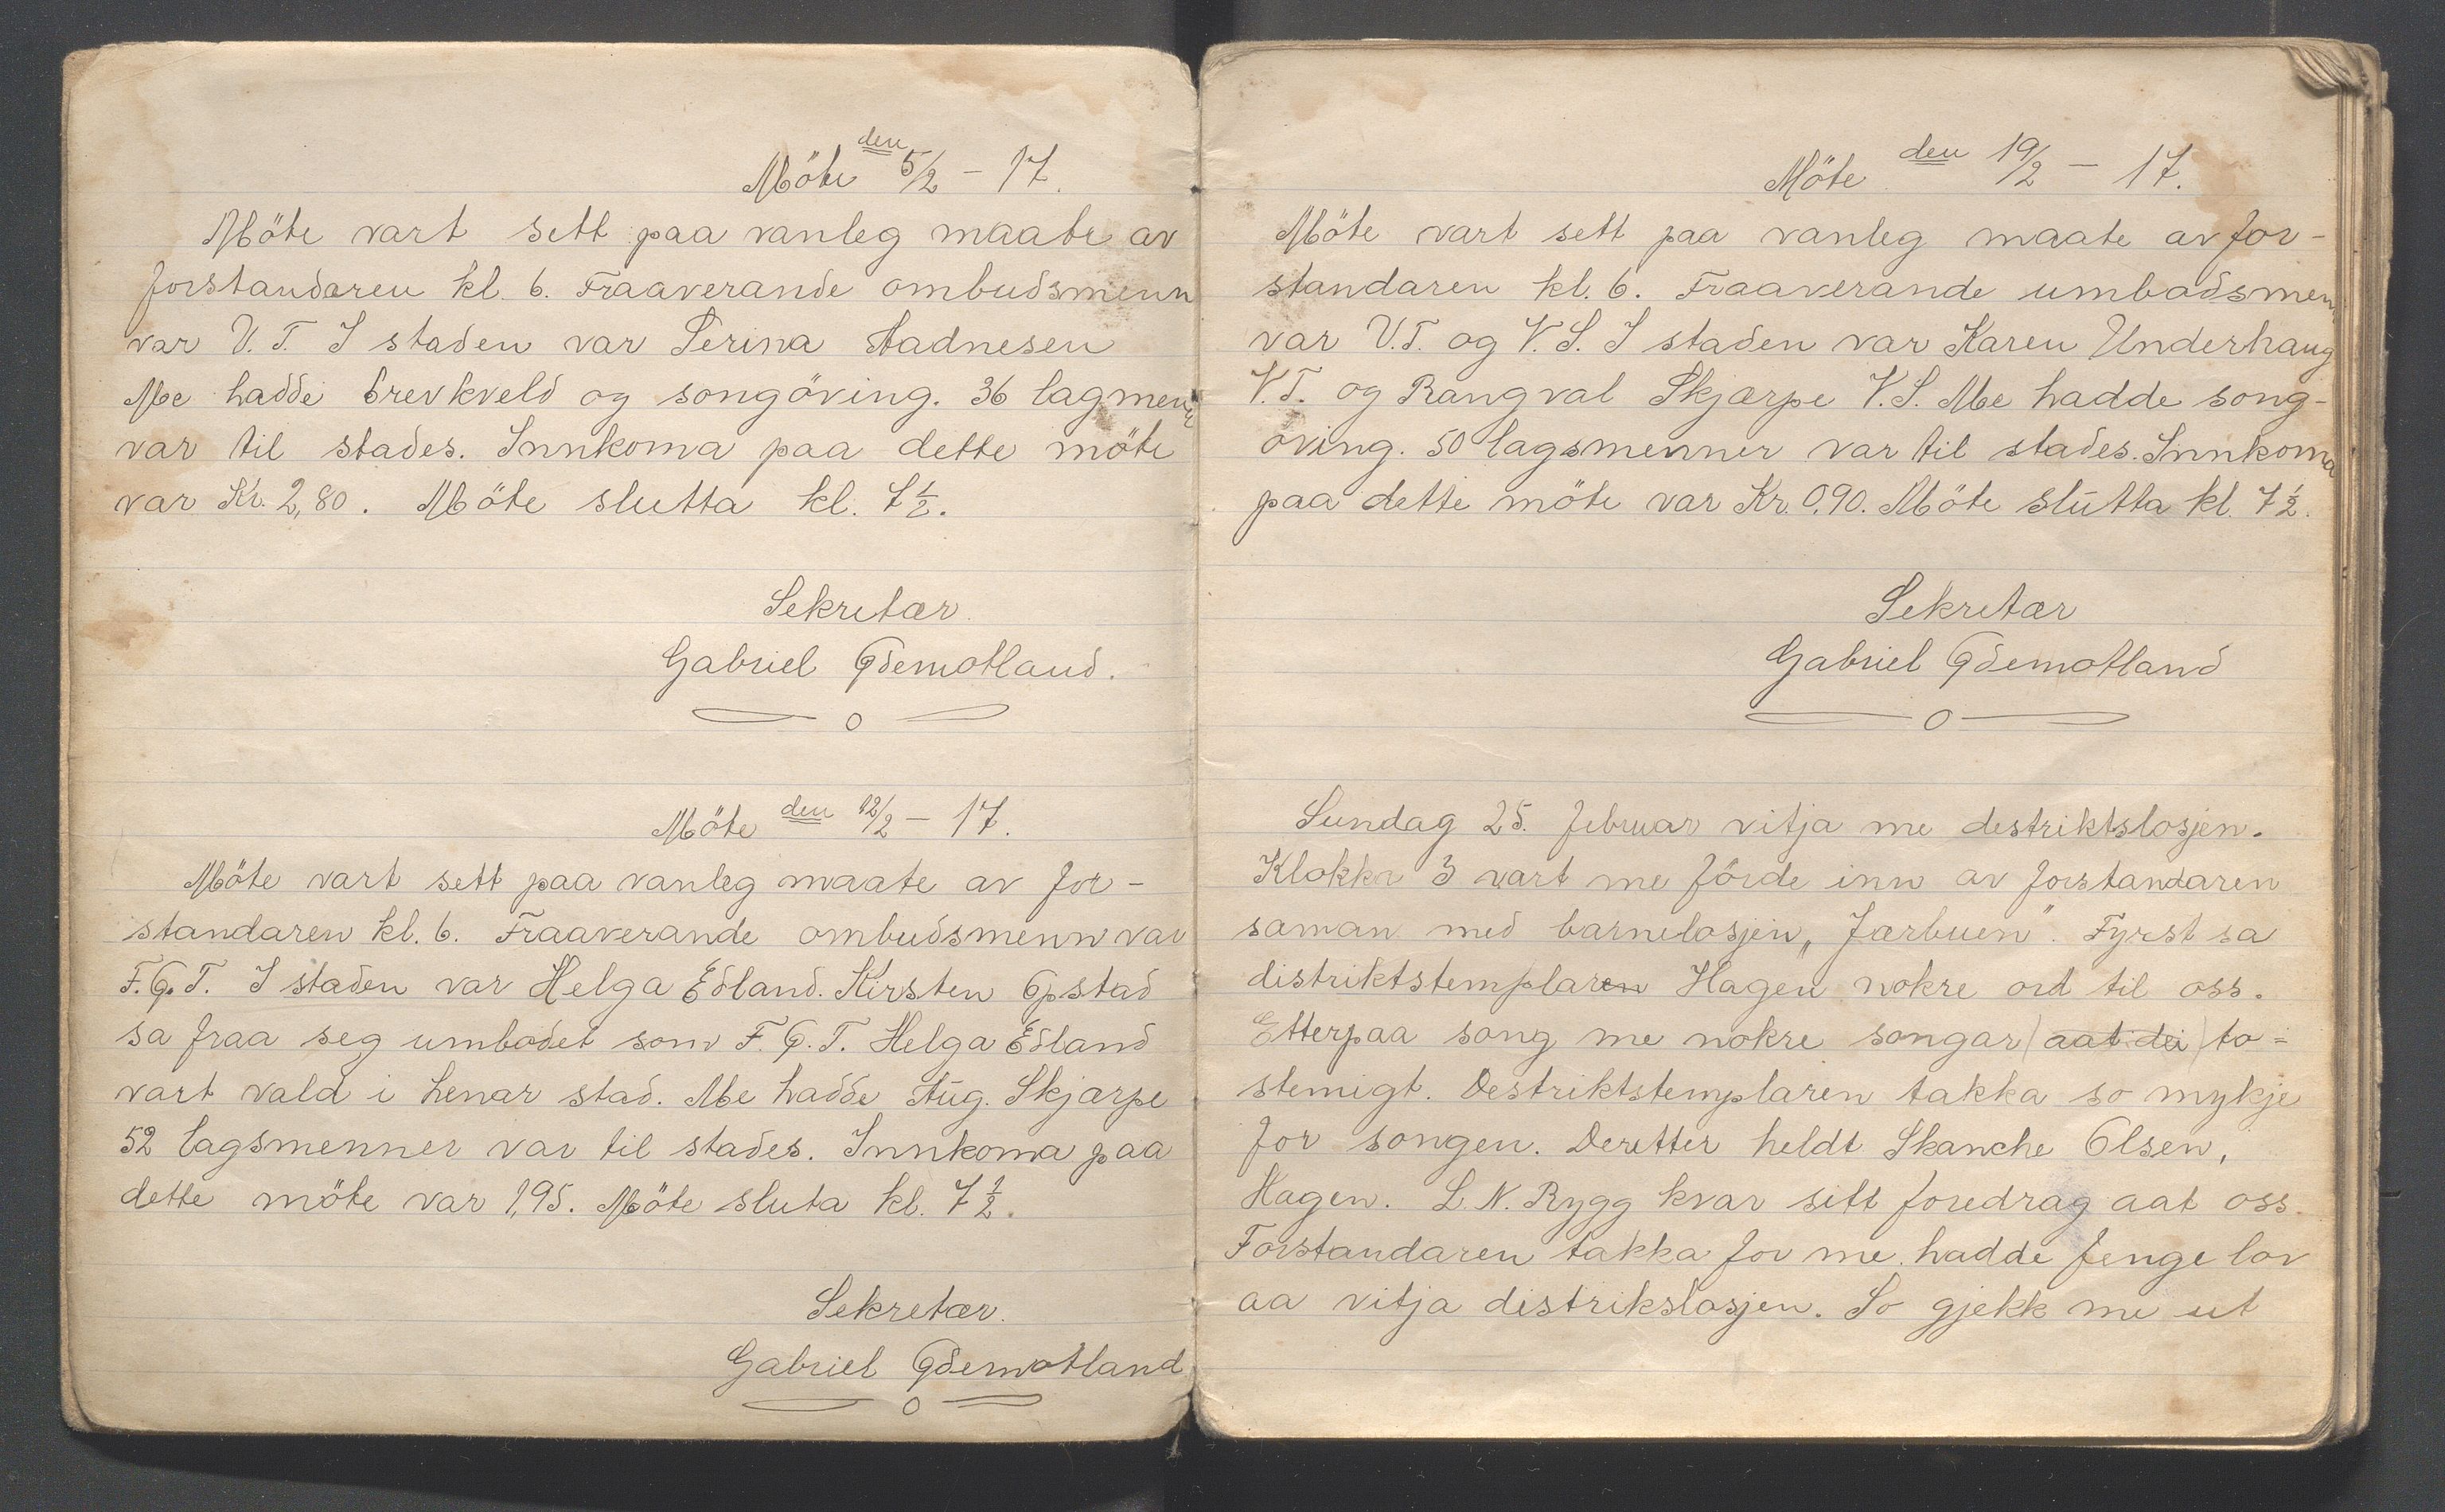 Möte den 5/2 - 17.
Möte vart sett paa vanleg maate av
forstandaren kl. 6. Fraaverande ombudsmenn
var V. T. I staden var Serina Stadnesen
Me hadde brevkveld og songöving. 36 lagmenn
var til stades. Innkoma paa dette möte
var Kr. 2,80. Möte slutta kl. 7 1/2.
Sekretær.
Gabriel Ødemotland.
Möte den 12/2 - 17.
Möte vart sett paa vanleg maate av for-
standaren kl. 6. Fraaverande ombudsmenn var
F.Q.T. I staden var Helga Edland. Kirsten Opstad
sa fraa seg umbodet som F.Q.T. Helga Edland
vart vald i henar stad. Me hadde Aug. Skjærpe
52 lagsmenner var til stades. Innkoma paa
dette möte var 1,95. Möte sluta kl. 7 1/2.
Sekretær.
Gabriel Ødemotland
Möte den 19/2 - 17.
Möte vart sett paa vanleg maate av for-
standaren kl. 6. Fraaverande umbodsmenn
var V.T. og V.S. I staden var Karen Underhaug
V.T. og Rangval Skjærpe V.S. Me hadde song-
öving. 50 lagsmenner var til stades. Innkoma
paa dette möte var Kr. 0,90. Möte slutta kl. 7 1/2.
Sekretær
Gabriel Ødemotland
Sundag 25. februar vitja me destriktslosjen.
Klokka 3 vart me förde inn av forstandaren
saman med barnelosjen „Jærbuen". Fyrst sa
distriktstemplaren Hagen nokre ord til oss.
Etterpaa song me nokre songar (aat dei) to-
stemigt. Destriktstemplaren takka so mykje
for songen. Deretter heldt Skanche Olsen,
Hagen. L. N. Rygg kvar sitt foredrag aat oss.
Forstandaren takka for me hadde fenge lov
aa vitja distrikslosjen. So gjekk me ut